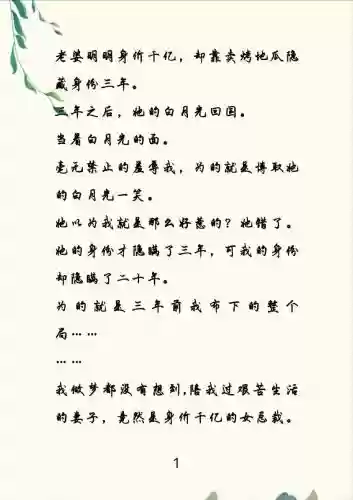 老婆明明身价千亿，却靠卖烤地瓜隐
藏身份三年。
三年之后，她的白月光回国。
当着白月光的面。
毫无禁止的羞辱我，为的就是博取她
的白月光一笑。
她以为我就是那么好惹的？她错了。
她的身份才隐瞒了三年，可我的身份
却隐瞒了二十年。
为的就是三年前我布下的整个
局……
……
我做梦都没有想到，陪我过艰苦生活
的妻子，竟然是身价千亿的女总裁。
1